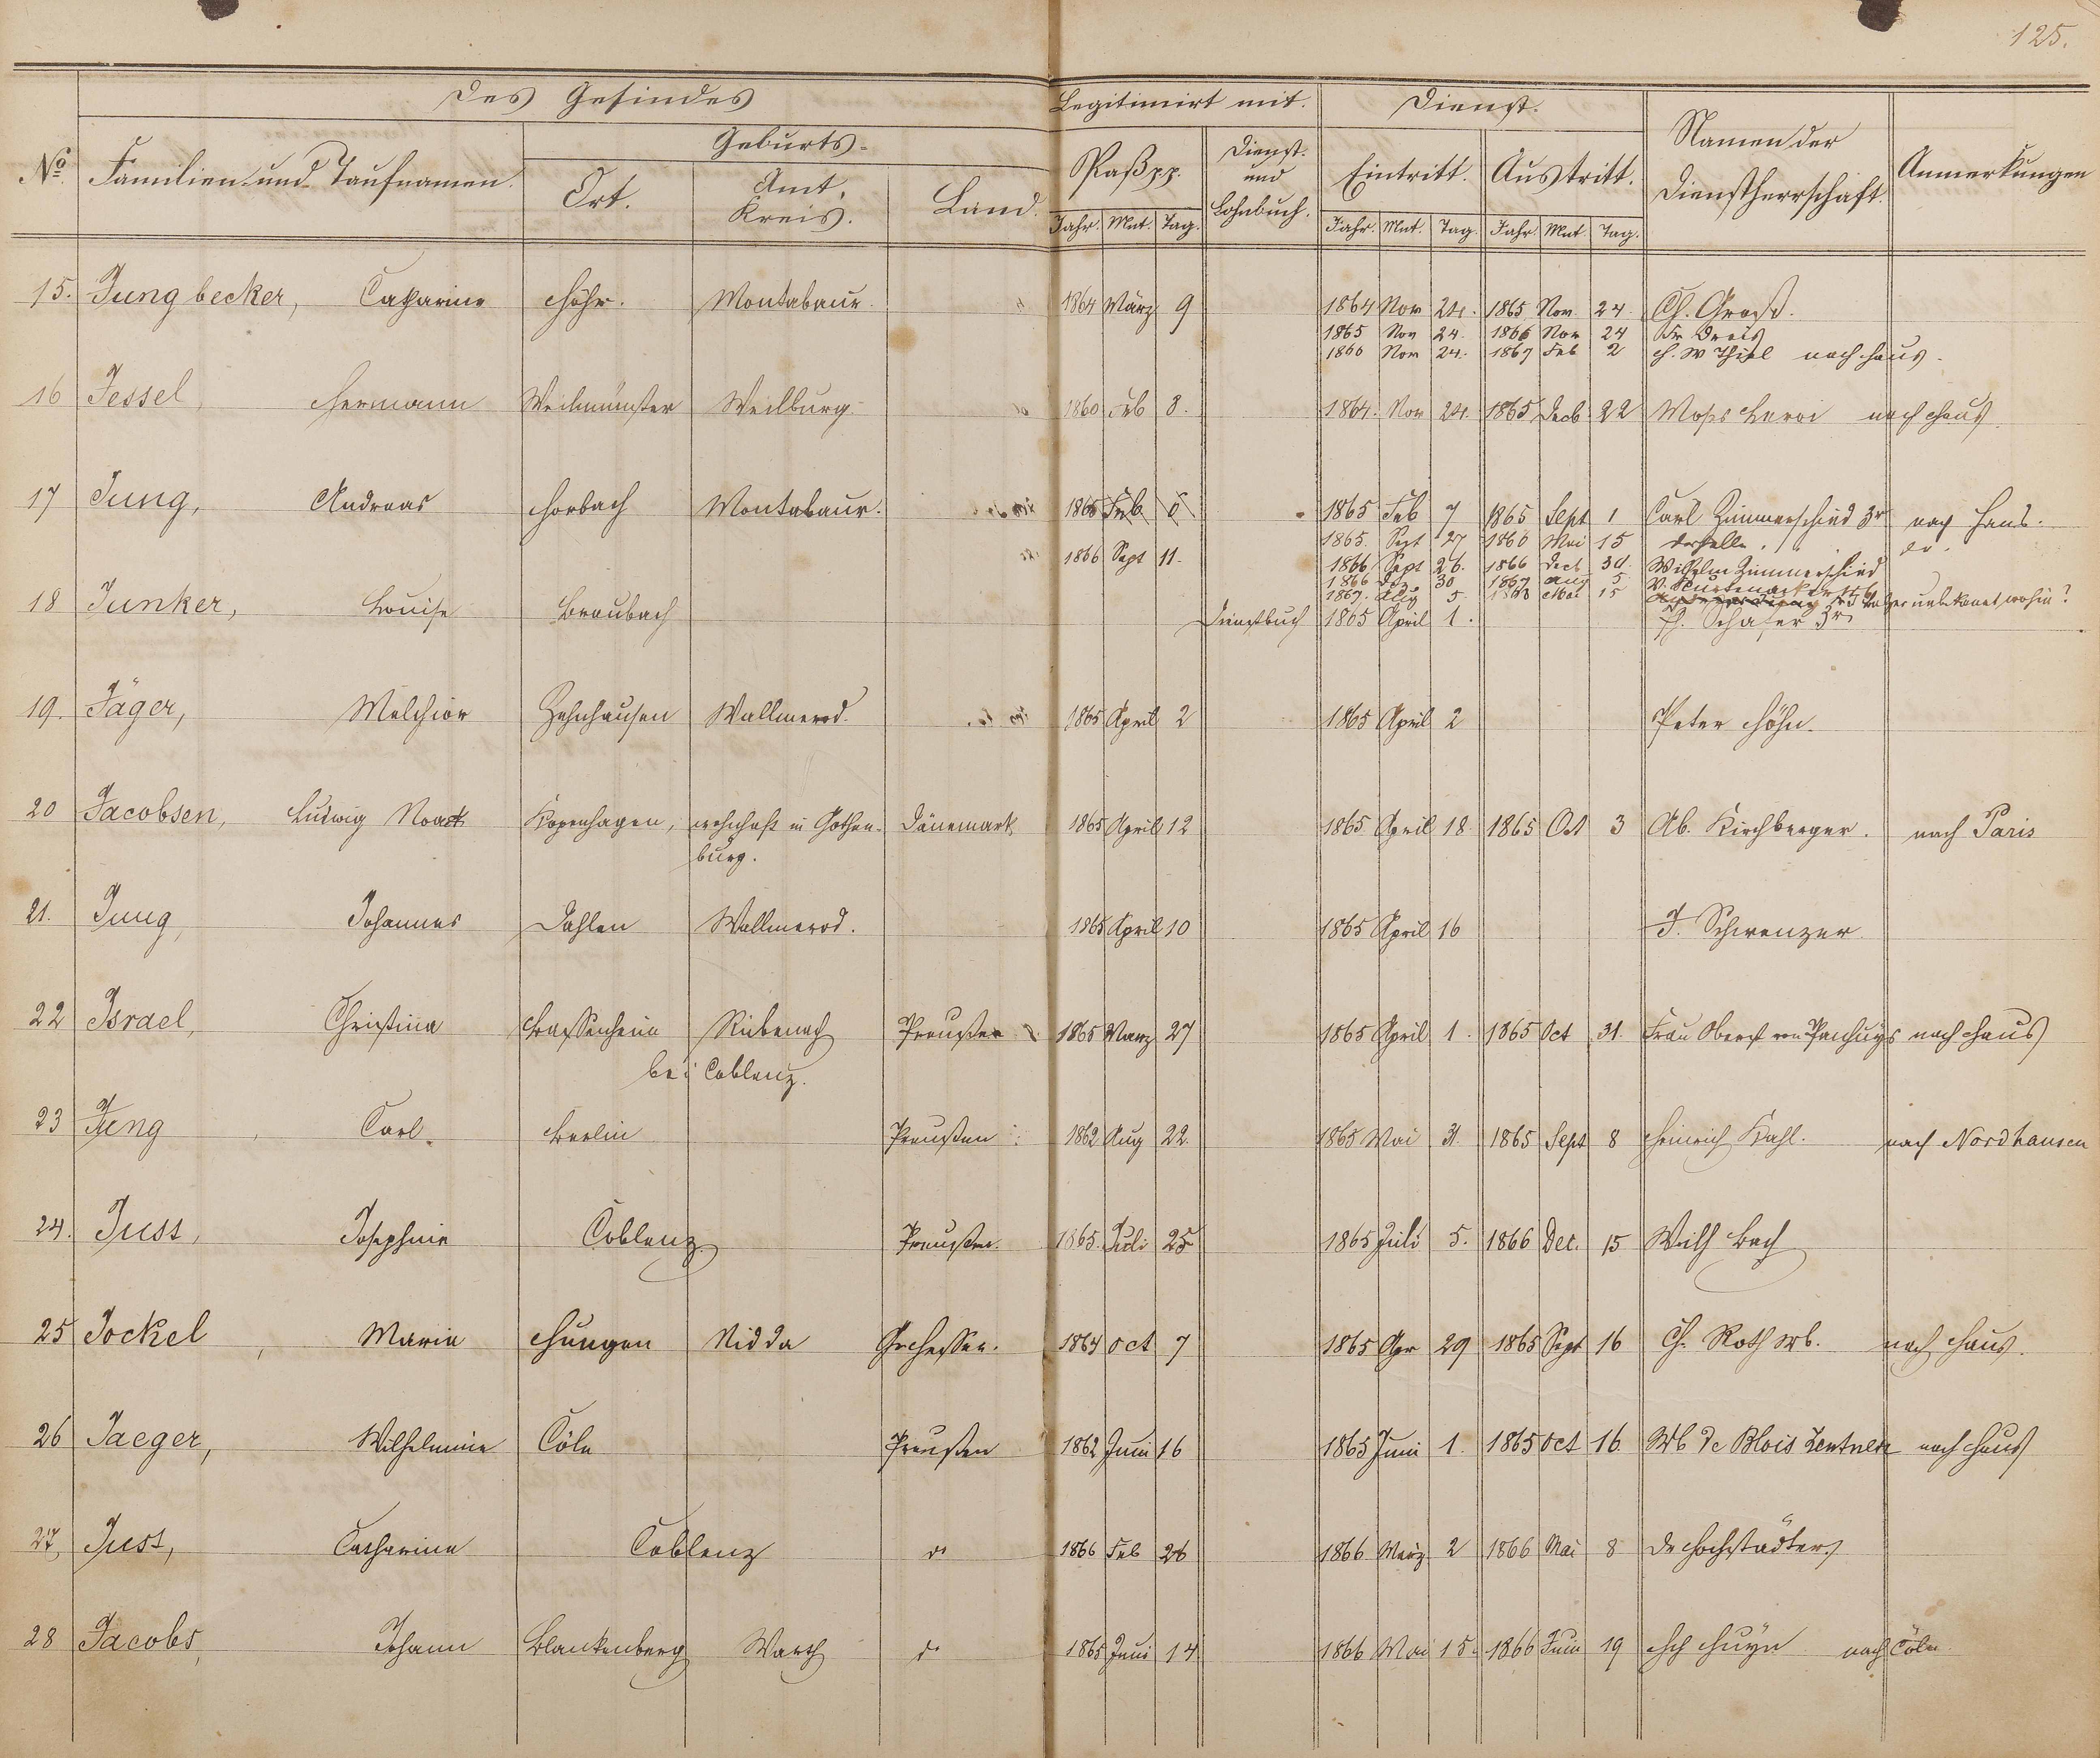 125.
Des Gesindes Legitimirt mit. Dienst.
No. Familien- und Taufnamen. Geburts- Paß pp. Dienst- und Lohnbuch. Eintritt. Austritt. Namen der Dienstherrschaft. Anmerkungen
Ort. Amt, Kreis. Land.
Jahr. Mnt. Tag. Jahr. Mnt. Tag. Jahr. Mnt. Tag.
15. Jungbecker, Catharine Höhr. Montabaur. 1864 März 9 1864 Nov 24. 1865 Nov. 24. Ch. Groß.
1865 Nov 24. 1866 Nov 24
1866 Nov 24. 1867 Feb 2 H. W Thiel nach Haus.
16 Jessel, Hermann Weilmünster Weilburg. 1860 Feb 8. 1864. Nov 24. 1865 Decb. 22 nach Haus.
17 Jung, Andreas Horbach Montabaur. 1865 Feb 6 1865 Feb 7 1865 Sept 1 Carl Zimmerschied 3r nach Haus.
1865. Sept 27 1866 Mai 15 derselbe. do.
1866 Sept 11. 1866 Sept 26. 1866 Dect 30. Wilhelm Zimmerschied
1866 Dez 30 1867 Aug 5
1867. Aug 5. 1868 Mai 15 unbekannt wohin?
18 Junker, Louise Braubach Dienstbuch 1865 April 1. Schäfer 3r
19. Jäger, Melchior Zehnhausen Wallmerod. 1865 April 2 1865 April 2 Peter Höhn.
20 Jacobsen, Ludwig Noack Kopenhagen, wohnhaft in Gothen- Dänemark 1865 April 12 1865 April 18. 1865 Oct 3 Ab. Kirchberger. nach Paris
burg.
21. Jung, Johannes Dahlen Wallmerod. 1865 April 10 1865 April 16 J. Schwenzer
22 Israel, Christina Bassenheim Rübenach Preußen 1865 März 27 1865 April 1. 1865 Oct 31. Frau Oberst von Panhuys nach Haus
bei Coblenz.
23 Jung, Carl Berlin Preußen 1862 Aug 22. 1865 Mai 31. 1865 Sept 8 Heinrich Kahl. nach Nordhausen
24. Just, Josephine Coblenz. Preußen. 1865. Juli 25 1865 Juli 5. 1866 Dec. 15 Wilh Bach
25 Jockel, Maria Hungen Nidda Grhessen. 1864 Oct 7 1865 Apr 29 1865 Sept 16 Ch. Roth Wb. nach Haus.
26 Jaeger, Wilhelmine Cöln Preußen 1862 Juni 16 1865 Juni 1. 1865 Oct 16. Wb de Blois Zentner nach Haus
27 Just, Catharina Coblenz do 1866 Feb 26 1866 März 2 1866 Mai 8 Dr Hochstädter
28 Jacobs, Johann Blankenberg Warth do 1865 Juni 14 1866 Mai 15. 1866 Juni 19 Hch Huyn nach Cöln.